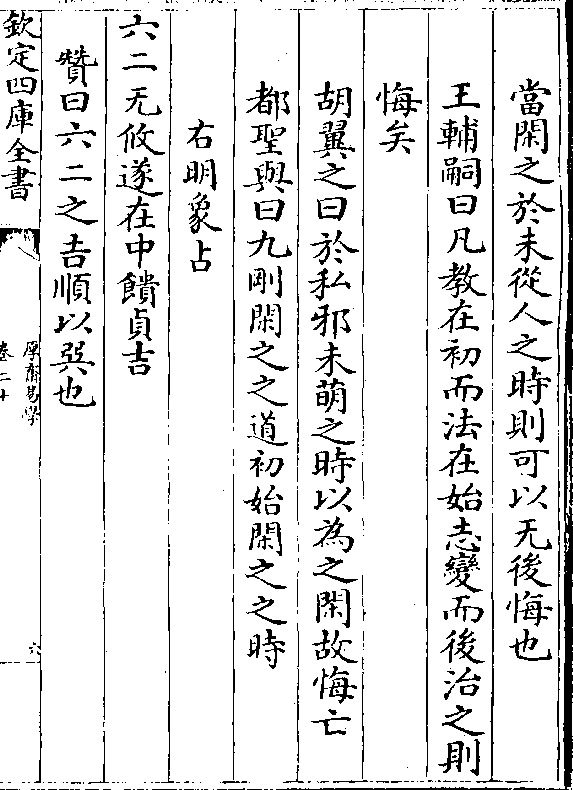 當閑之於未從人之時則可以无後悔也
王輔嗣曰凡教在初而法在始志變而後治之則
悔矣
胡翼之曰於私邪未萌之時以為之閑故悔亡
都聖與曰九剛閑之之道初始閑之之時
右明象占
六二无攸遂在中饋貞吉
贊曰六二之吉順以巽也
欽定四庫全書
厚齋易學
卷二十
六